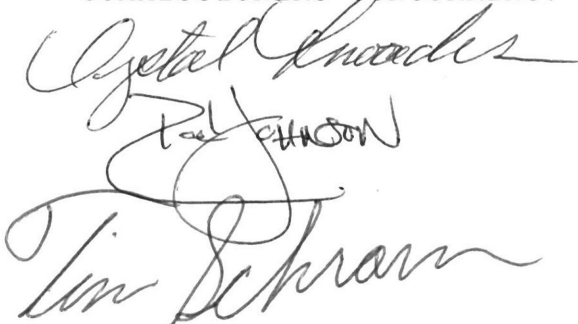 Crystal Rhoades
Paul Johnson
Tim Schram